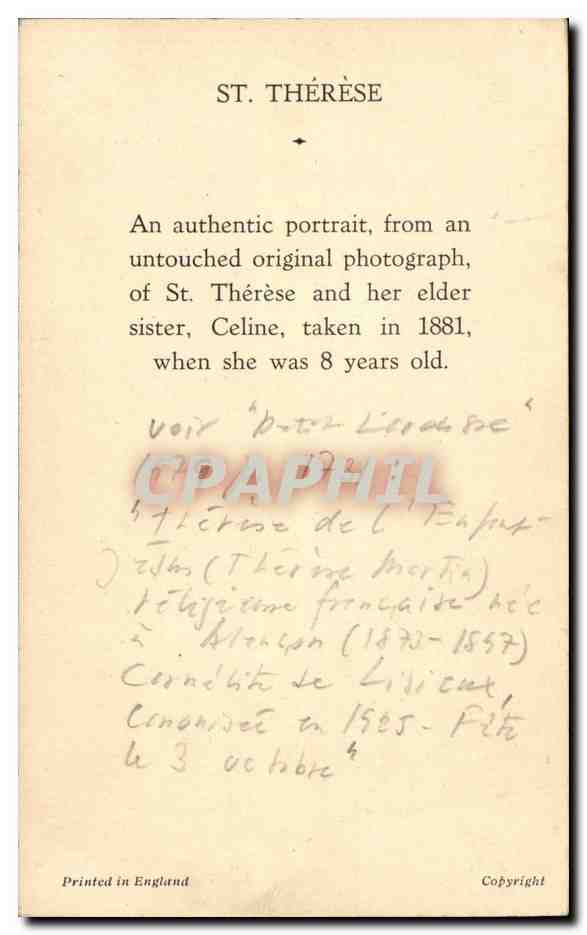 ST. THÉRÈSE
An authentic portrait, from an
untouched original photograph,
of St. Thérèse and her elder
sister, Celine, taken in 1881,
when she was 8 years old.
voir "Petit Larousse"
CPAPHIL
"Thérèse de l'Enfant-
Jésus (Thérèse Martin)
religieuse française née
à Alençon (1873-1897)
Carmélite de Lisieux,
Canonisée en 1925 - Fête
le 3 octobre"
Printed in England
Copyright